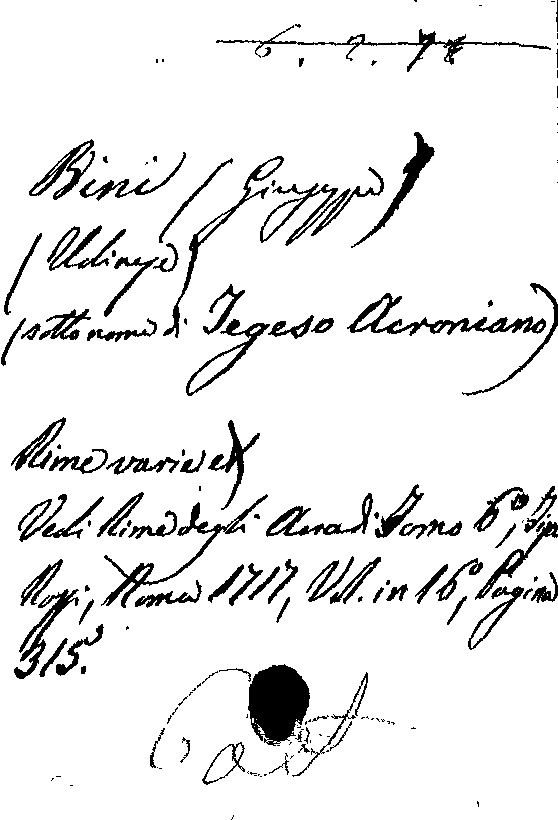 6. 2. 78
Bini (Giuseppe)
(Udinese)
(sotto nome di Tegeso Acroniano)
Rime varie
Vedi Rime degli Arcadi Tomo 6º, Tip.
Rossi, Roma 1717, Vol. in 16º, Pagina
315.